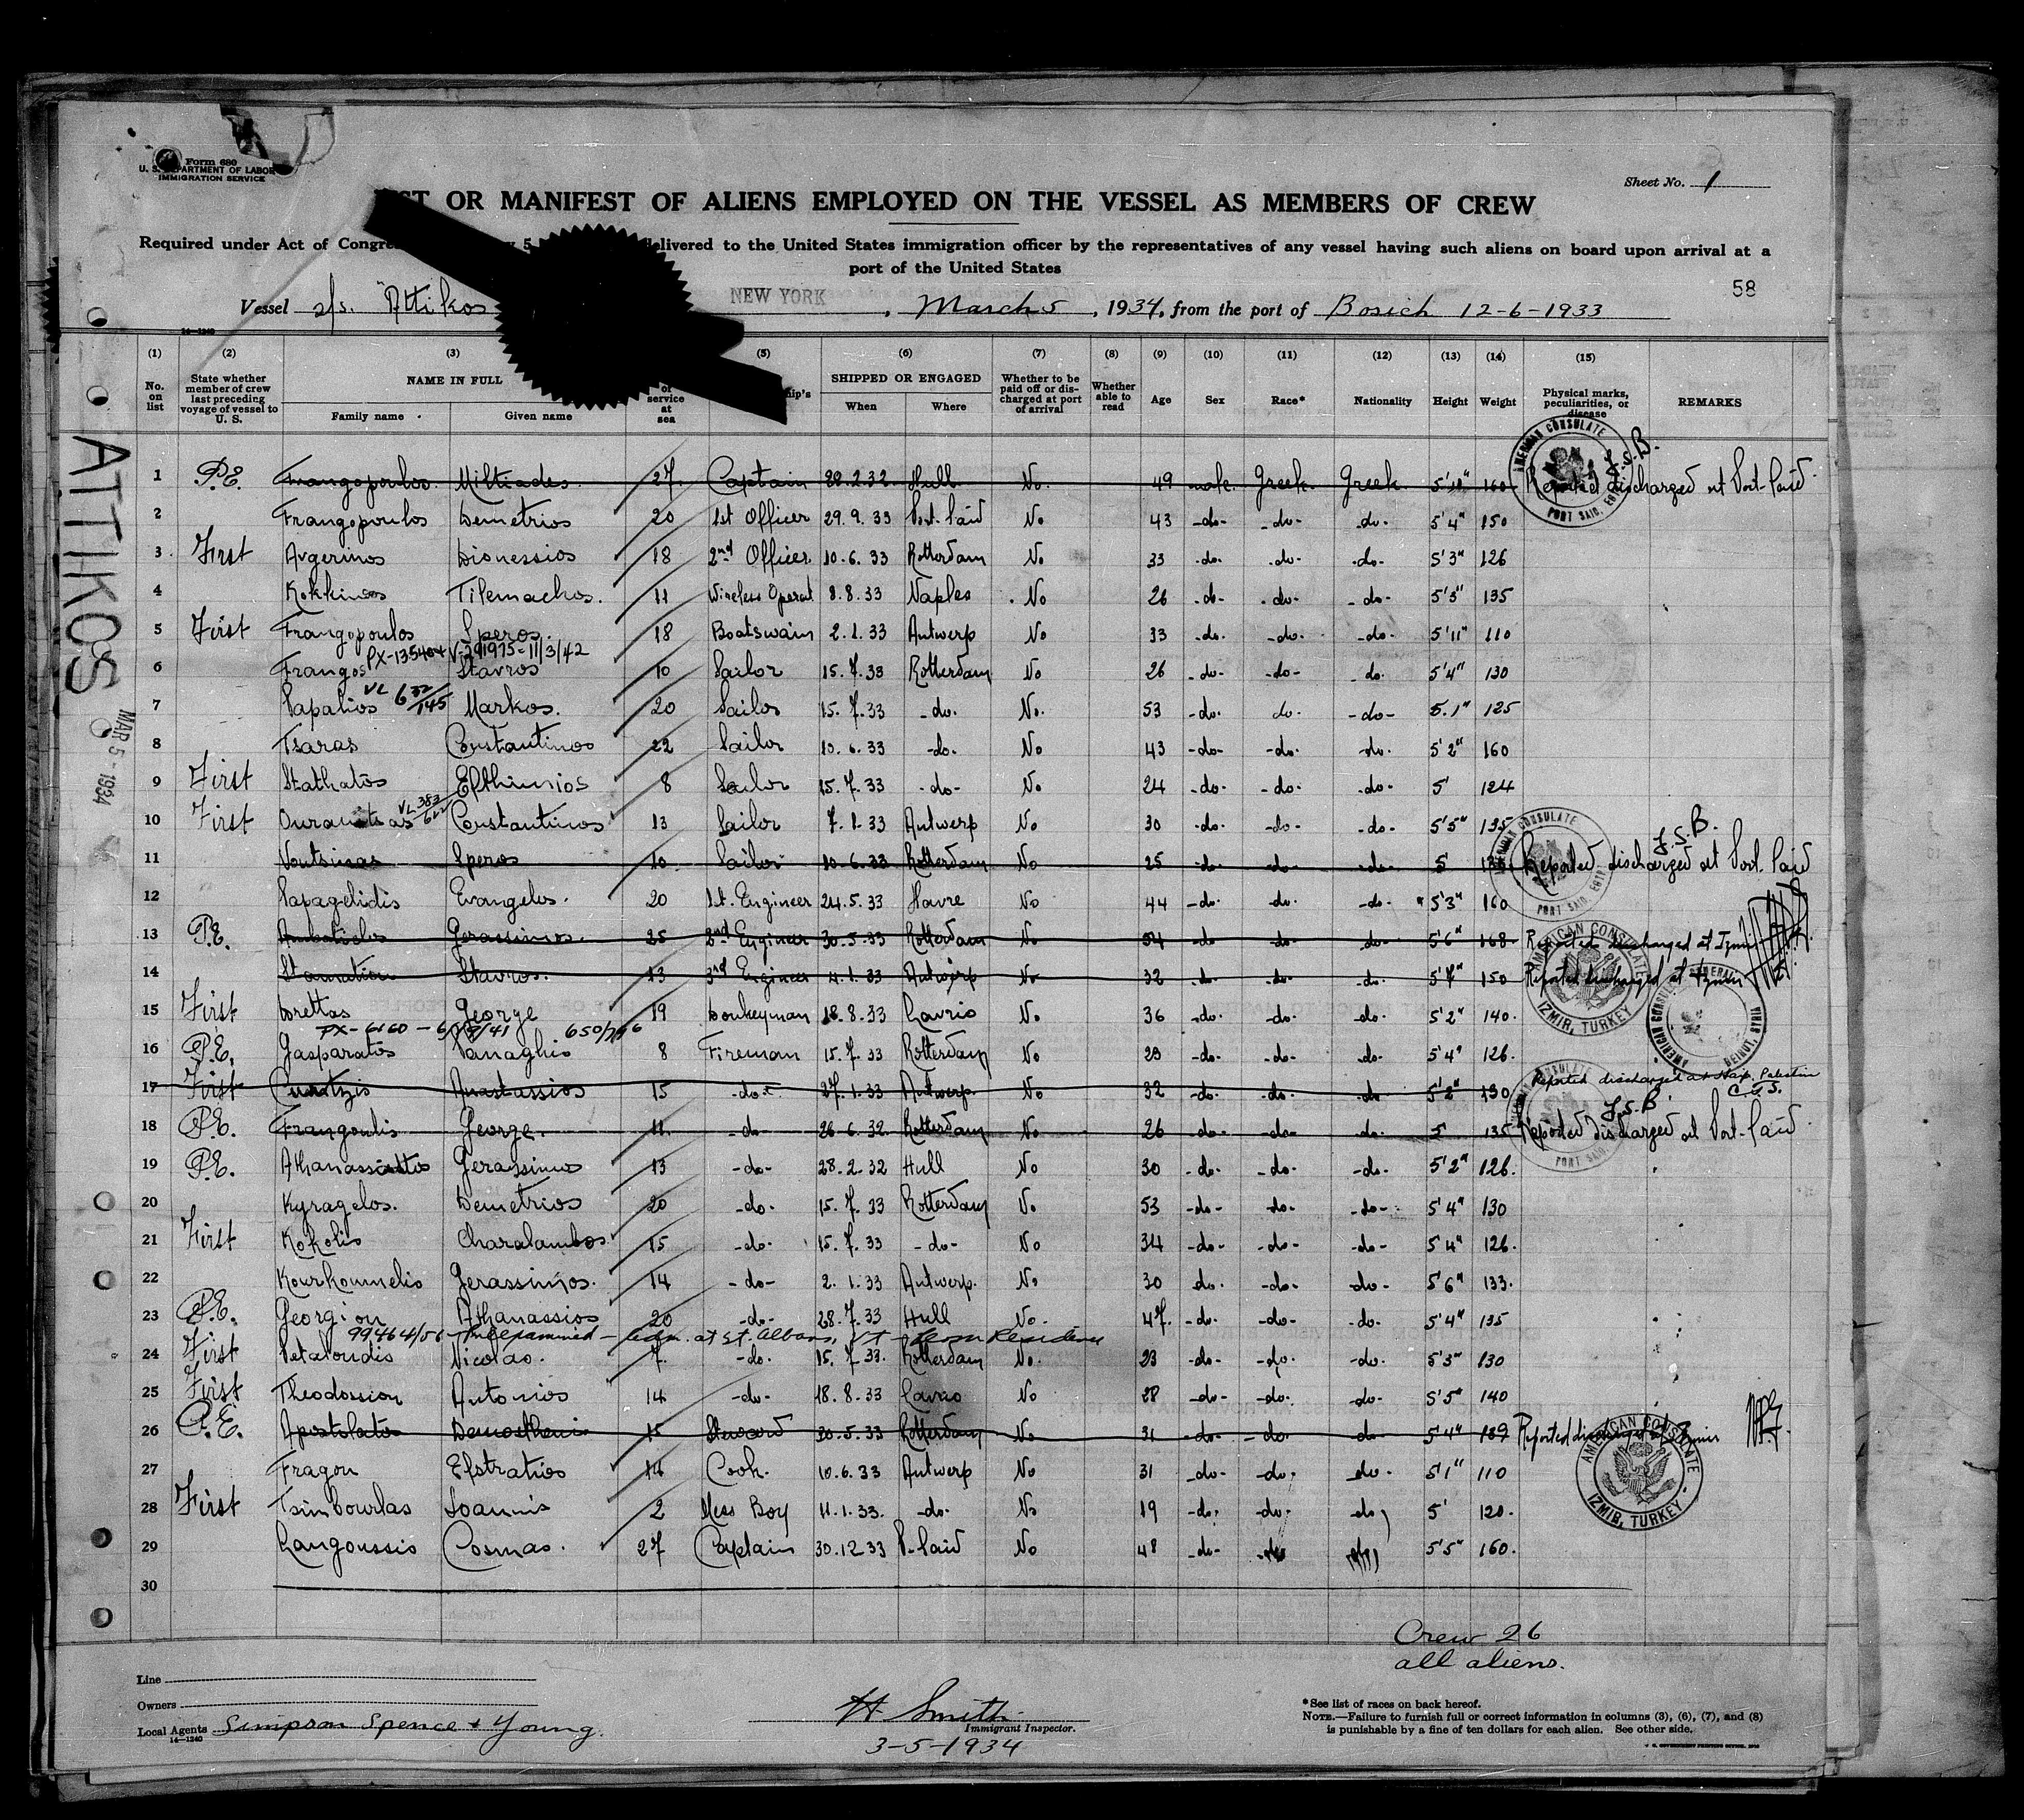 Form 680
U. S. DEPARTMENT OF LABOR
IMMIGRATION SERVICE
Sheet No. 1
OR MANIFEST OF ALIENS EMPLOYED ON THE VESSEL AS MEMBERS OF CREW
Required under Act of Congre 5 delivered to the United States immigration officer by the representatives of any vessel having such aliens on board upon arrival at a
port of the United States
58
Vessel s/s. "Attikos NEW YORK, March 5, 1934, from the port of 12-6-1933
14—1240
(1) (2) (3) (5) (6) (7) (8) (9) (10) (11) (12) (13) (14) (15)
No. on list State whether member of crew last preceding voyage of vessel to U. S. NAME IN FULL Family name Given name of service at sea SHIPPED OR ENGAGED When Where Whether to be paid off or discharged at port of arrival Whether able to read Age Sex Race* Nationality Height Weight Physical marks, peculiarities, or disease REMARKS
ATTIKOS
MAR 5 - 1934
1 P.E. Frangopoulos Miltiades 27 Captain 28.2.32 Hull No. 49 male Greek Greek 5'10" 160 Reported discharged at Port-Said J.S.B.
AMERICAN CONSULATE PORT SAID, EGYPT
2 Frangopoulos Demetrios 20 1st Officer 29.9.33 Port-Said No 43 -do- -do- -do- 5'4" 150
3 First Avgerinos Dionessios 18 2nd Officer 10.6.33 Rotterdam No 33 -do- -do- -do- 5'3" 126
4 Kokkinos Tilemachos. 11 Wireless Operat 8.8.33 Naples No 26 -do- -do- -do- 5'3" 135
5 First Frangopoulos Speros. 18 Boatswain 2.1.33 Antwerp No 33 -do- -do- -do- 5'11" 110
PX-135404 V-291975-11/3/42
6 Frangos Stavros 10 Sailor 15.7.33 Rotterdam No 26 -do- -do- -do- 5'4" 130
7 Markos. 20 Sailor 15.7.33 -do- No. 53 -do- do- -do- 5.1" 125
8 Tsaras Constantinos 22 Sailor 10.6.33 -do- No 43 -do- -do- -do- 5'2" 160
9 First Stathatos Efthimios 8 Sailor 15.7.33 -do- No 24 -do- -do- -do- 5' 124
10 First Constantinos 13 Sailor 7.1.33 Antwerp No 30 -do- -do- -do- 5'5" 135
11 Voutsinas Speros 10 Sailor 10.6.33 Rotterdam No 25 -do- -do- -do- 5' Reported discharged at Port Said J.S.B.
AMERICAN CONSULATE PORT SAID, EGYPT
12 Papagelidis Evangelos. 20 1st. Engineer 24.5.33 Havre No 44 -do- -do- -do- 5'3" 160
13 P.E. Gerassimos. 25 2nd Engineer 30.5.33 Rotterdam No 54 -do- -do- -do- 5'6" 168 Reported discharged at Izmir
14 Stavros. 13 3rd Engineer 4.1.33 Antwerp No 32 -do- -do- -do- 150 Reported discharged at Izmir
AMERICAN CONSULATE IZMIR, TURKEY
15 First Drettas George 19 Donkeyman 18.8.33 Lavrio No 36 -do- -do- -do- 5'2" 140.
AMERICAN CONSULATE GENERAL BEIRUT, SYRIA
16 P.E. Gasparatos Panaghis 8 Fireman 15.7.33 Rotterdam No 23 -do- -do- -do- 5'4" 126.
17 First Anastassios 15 -do- 27.1.33 Antwerp. No 32 -do- -do- -do- 5'2" 130 Reported discharged at Palestine
18 P.E. Frangoulis George. 11. -do- 26.6.32 Rotterdam No 26 -do- -do- -do- 5 135 Reported discharged at Port-Said J.S.B.
19 P.E. Gerassimos 13 -do- 28.2.32 Hull No 30 -do- -do- -do- 5'2" 126.
20 Kyragelos. Demetrios 20 -do- 15.7.33 Rotterdam No 53 -do- -do- -do- 5'4" 130
21 First Kokolis Charalambos 15 -do- 15.7.33 -do- No 34 -do- -do- -do- 5'4" 126.
22 Kourkoumelis Gerassimos. 14 -do- 2.1.33 Antwerp. No 30 -do- -do- -do- 5'6" 133.
23 P.E. Georgiou Athanassios 20 -do- 28.7.33 Hull No. 47. -do- -do- -do- 5'4" 135
adm. at St. Albans, VT
24 First Petaloudis Nicolao. 7. -do- 15.7.33. Rotterdam No. 23 -do- -do- -do- 5'3" 130
25 First Theodossiou Antonios 14 -do- 18.8.33 Lavrio No 28 -do- -do- -do- 5'5" 140
26 P.E. Apostolatos 15 Steward 20.5.33 Rotterdam No 31 -do- -do- -do- 5'4" 189 Reported discharged
AMERICAN CONSULATE IZMIR, TURKEY
27 Fragou Efstratios 14 Cook. 10.6.33 Antwerp No 31 -do- -do- -do- 5'1" 110
28 First Tsimbourlas Ioannis 2 Mess Boy 11.1.33. -do- No 19 -do- -do- -do- 5' 120.
29 Langoussis Cosmas. 27 Captain 30.12.33 P. Said No 48 -do- 5'5" 160.
30
Crew 26
all aliens.
Line
Owners
Local Agents Simpson Spence & Young.
14—1240
H Smith
Immigrant Inspector.
3-5-1934
*See list of races on back hereof.
NOTE.—Failure to furnish full or correct information in columns (3), (6), (7), and (8)
is punishable by a fine of ten dollars for each alien. See other side.